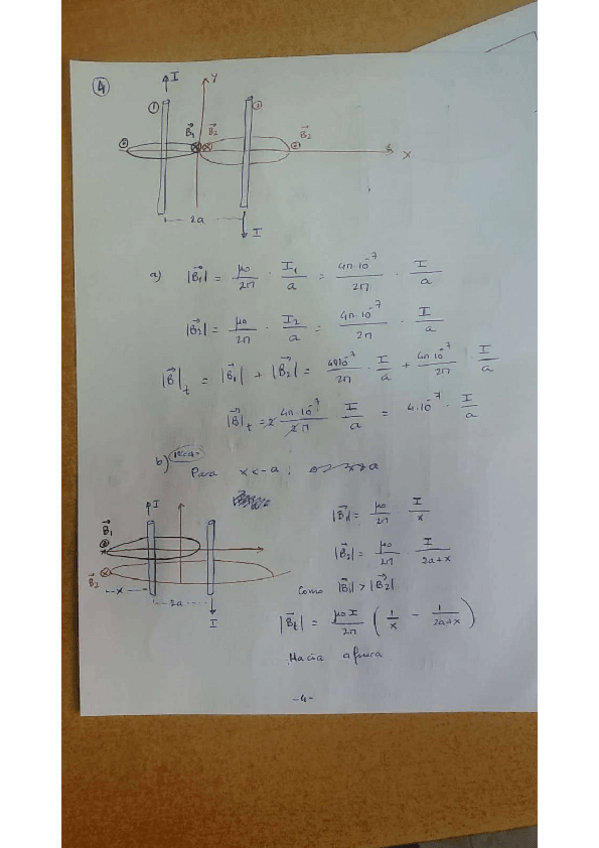 4
I
Y
1
B⃗₁ B⃗₂
B⃗₂
X
2a
I
a) |B⃗₁| = μ₀/2π · I₁/a = 4π·10⁻⁷/2π · I/a
|B⃗₂| = μ₀/2π · I₂/a = 4π·10⁻⁷/2π · I/a
|B⃗|t = |B⃗₁| + |B⃗₂| = 4π10⁻⁷/2π · I/a + 4π10⁻⁷/2π · I/a
|B⃗|t = 2 4π·10⁻⁷/2π · I/a = 4·10⁻⁷ · I/a
b)
Para x<-a;
I
B⃗₁
B⃗₂
-x-
2a
I
|B⃗₁| = μ₀/2π · I/x
|B⃗₂| = μ₀/2π · I/2a+x
Como |B⃗₁| > |B⃗₂|
|B⃗t| = μ₀I/2π (1/x - 1/2a+x)
Hacia afuera
-4-